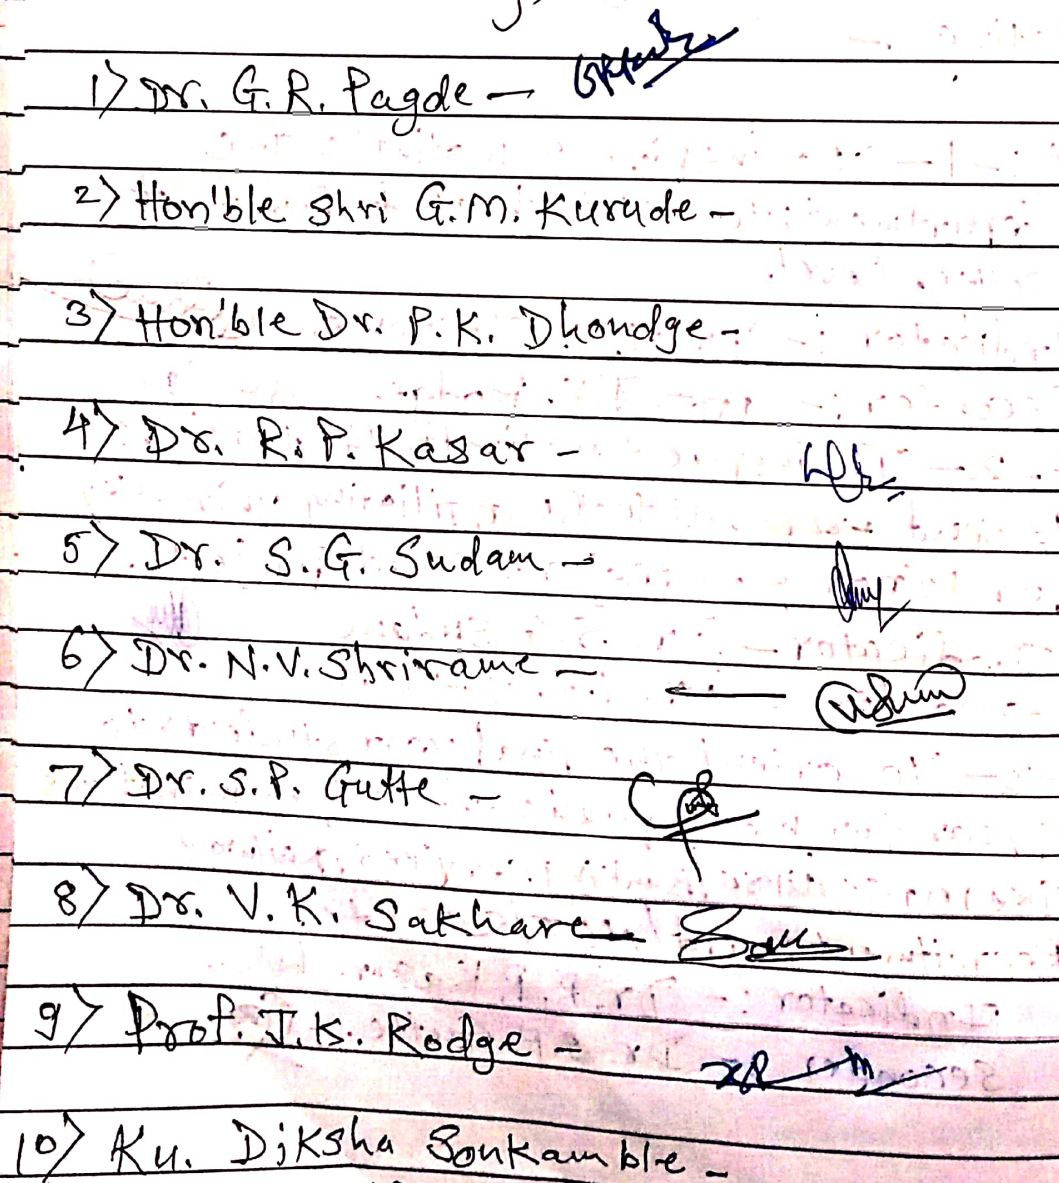 1) Dr. G. R. Pagde -
2) Hon'ble Shri G.M. Kurude -
3) Hon'ble Dr. P.K. Dhondge -
4) Dr. R.P. Kasar -
5) Dr. S.G. Sudam -
6) Dr. N.V. Shrirame -
7) Dr. S.P. Gutte -
8) Dr. V.K. Sakhare -
9) Prof. J.K. Rodge -
10) Ku. Diksha Sonkamble -